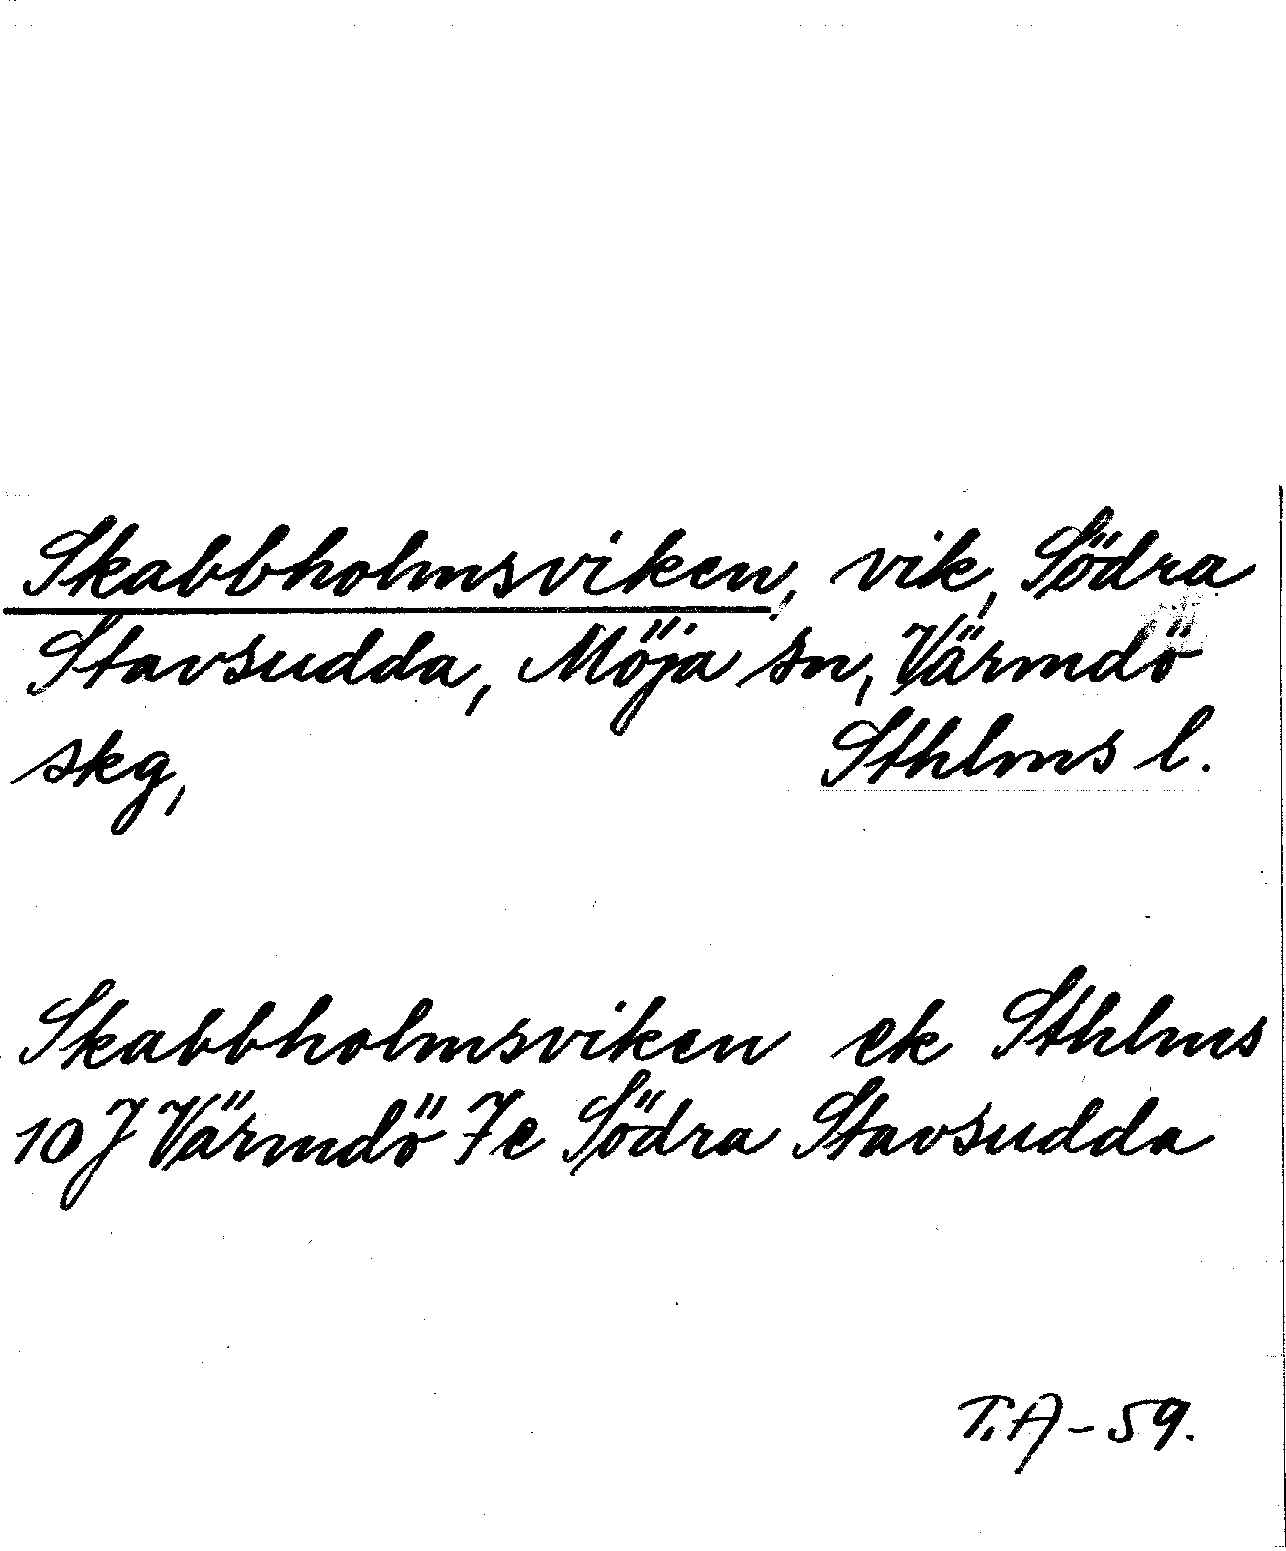 Skabbholmsviken, vik, Södra
Stavsudda, Möja sn, Värmdö
skg, Sthlms l.
Skabbholmsviken ek Sthlms
10 J Värmdö 7e Södra Stavsudda
T.A-59.